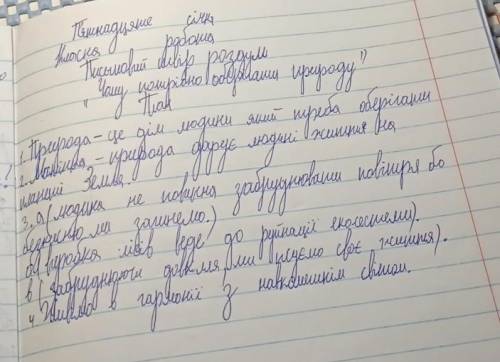 Пʼтнадцяте січня
Класна робота
Письмовий твір роздум
"Чому потрібно оберігати природу"
План
1. Природа - це дім людини який треба оберігати
2. Малинка - природа дарує людині життя на
планеті Земля.
3. а(людина не повинна забруднювати повітря бо
ми загинемо.)
б(вирубка лісів веде до руйнації екосистеми).
в (забруднюючи довкілля ми псуємо своє життя).
4. Живемо в гармонії з навколишнім світом.